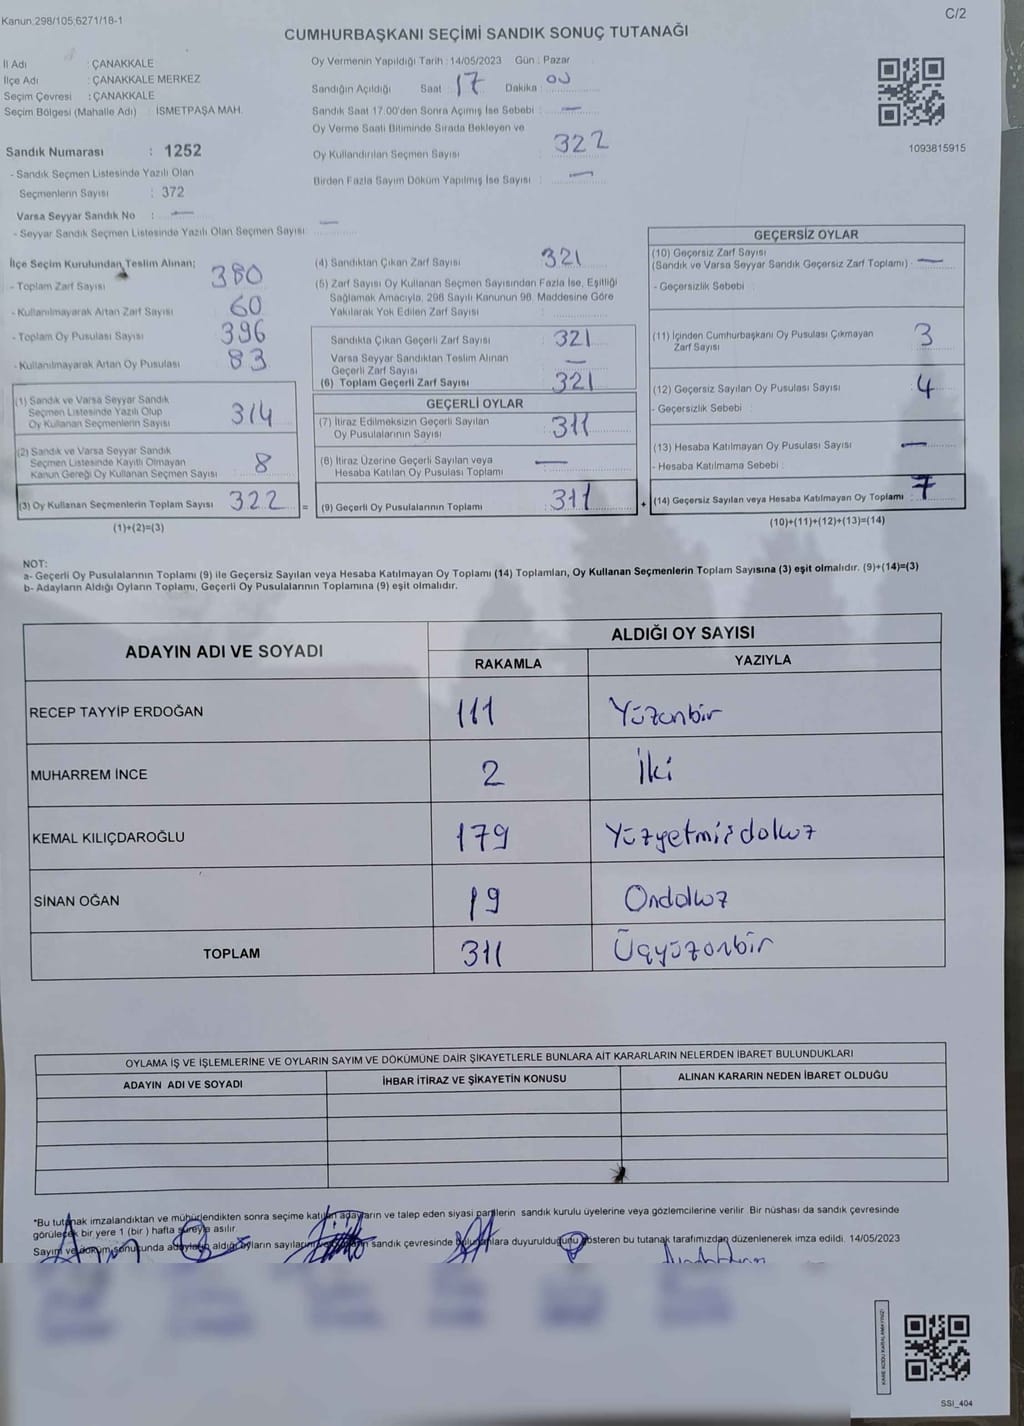 Kanun:298/105;6271/18-1
C/2
CUMHURBAŞKANI SEÇİMİ SANDIK SONUÇ TUTANAĞI
İl Adı : ÇANAKKALE
İlçe Adı : ÇANAKKALE MERKEZ
Seçim Çevresi : ÇANAKKALE
Seçim Bölgesi (Mahalle Adı) : İSMETPAŞA MAH.
Sandık Numarası : 1252
- Sandık Seçmen Listesinde Yazılı Olan
Seçmenlerin Sayısı : 372
Varsa Seyyar Sandık No : —
- Seyyar Sandık Seçmen Listesinde Yazılı Olan Seçmen Sayısı : —
Oy Vermenin Yapıldığı Tarih : 14/05/2023 Gün : Pazar
Sandığın Açıldığı Saat 17 Dakika : 00
Sandık Saat 17.00'den Sonra Açılmış İse Sebebi : —
Oy Verme Saati Bitiminde Sırada Bekleyen ve
Oy Kullandırılan Seçmen Sayısı : 322
Birden Fazla Sayım Döküm Yapılmış İse Sayısı : —
1093815915
İlçe Seçim Kurulundan Teslim Alınan;
- Toplam Zarf Sayısı 380
- Kullanılmayarak Artan Zarf Sayısı 60
- Toplam Oy Pusulası Sayısı 396
- Kullanılmayarak Artan Oy Pusulası 83
(1) Sandık ve Varsa Seyyar Sandık
Seçmen Listesinde Yazılı Olup
Oy Kullanan Seçmenlerin Sayısı 314
(2) Sandık ve Varsa Seyyar Sandık
Seçmen Listesinde Kayıtlı Olmayan
Kanun Gereği Oy Kullanan Seçmen Sayısı 8
(3) Oy Kullanan Seçmenlerin Toplam Sayısı 322
(1)+(2)=(3)
=
(4) Sandıktan Çıkan Zarf Sayısı 321
(5) Zarf Sayısı Oy Kullanan Seçmen Sayısından Fazla İse, Eşitliği
Sağlamak Amacıyla, 298 Sayılı Kanunun 98. Maddesine Göre
Yakılarak Yok Edilen Zarf Sayısı :
Sandıkta Çıkan Geçerli Zarf Sayısı 321
Varsa Seyyar Sandıktan Teslim Alınan
Geçerli Zarf Sayısı —
(6) Toplam Geçerli Zarf Sayısı 321
GEÇERLİ OYLAR
(7) İtiraz Edilmeksizin Geçerli Sayılan
Oy Pusulalarının Sayısı 311
(8) İtiraz Üzerine Geçerli Sayılan veya
Hesaba Katılan Oy Pusulası Toplamı —
(9) Geçerli Oy Pusulalarının Toplamı 311
+
GEÇERSİZ OYLAR
(10) Geçersiz Zarf Sayısı
(Sandık ve Varsa Seyyar Sandık Geçersiz Zarf Toplamı) : —
- Geçersizlik Sebebi :
(11) İçinden Cumhurbaşkanı Oy Pusulası Çıkmayan
Zarf Sayısı 3
(12) Geçersiz Sayılan Oy Pusulası Sayısı 4
- Geçersizlik Sebebi :
(13) Hesaba Katılmayan Oy Pusulası Sayısı —
- Hesaba Katılmama Sebebi :
(14) Geçersiz Sayılan veya Hesaba Katılmayan Oy Toplamı : 7
(10)+(11)+(12)+(13)=(14)
NOT:
a- Geçerli Oy Pusulalarının Toplamı (9) ile Geçersiz Sayılan veya Hesaba Katılmayan Oy Toplamı (14) Toplamları, Oy Kullanan Seçmenlerin Toplam Sayısına (3) eşit olmalıdır. (9)+(14)=(3)
b- Adayların Aldığı Oyların Toplamı, Geçerli Oy Pusulalarının Toplamına (9) eşit olmalıdır.
ADAYIN ADI VE SOYADI
ALDIĞI OY SAYISI
RAKAMLA YAZIYLA
RECEP TAYYİP ERDOĞAN 111 Yüzonbir
MUHARREM İNCE 2 İki
KEMAL KILIÇDAROĞLU 179 Yüzyetmişdokuz
SİNAN OĞAN 19 Ondokuz
TOPLAM 311 Üçyüzonbir
OYLAMA İŞ VE İŞLEMLERİNE VE OYLARIN SAYIM VE DÖKÜMÜNE DAİR ŞİKAYETLERLE BUNLARA AİT KARARLARIN NELERDEN İBARET BULUNDUKLARI
ADAYIN ADI VE SOYADI İHBAR İTİRAZ VE ŞİKAYETİN KONUSU ALINAN KARARIN NEDEN İBARET OLDUĞU
*Bu tutanak imzalandıktan ve mühürlendikten sonra seçime katılan adayların ve talep eden siyasi partilerin sandık kurulu üyelerine veya gözlemcilerine verilir. Bir nüshası da sandık çevresinde
görülecek bir yere 1 (bir ) hafta süreyle asılır.
Sayım ve döküm sonucunda adayların aldığı oyların sayıların sandık çevresinde bulunanlara duyurulduğunu gösteren bu tutanak tarafımızdan düzenlenerek imza edildi. 14/05/2023
KARE KODU KARALAMAYINIZ!
SSI_404